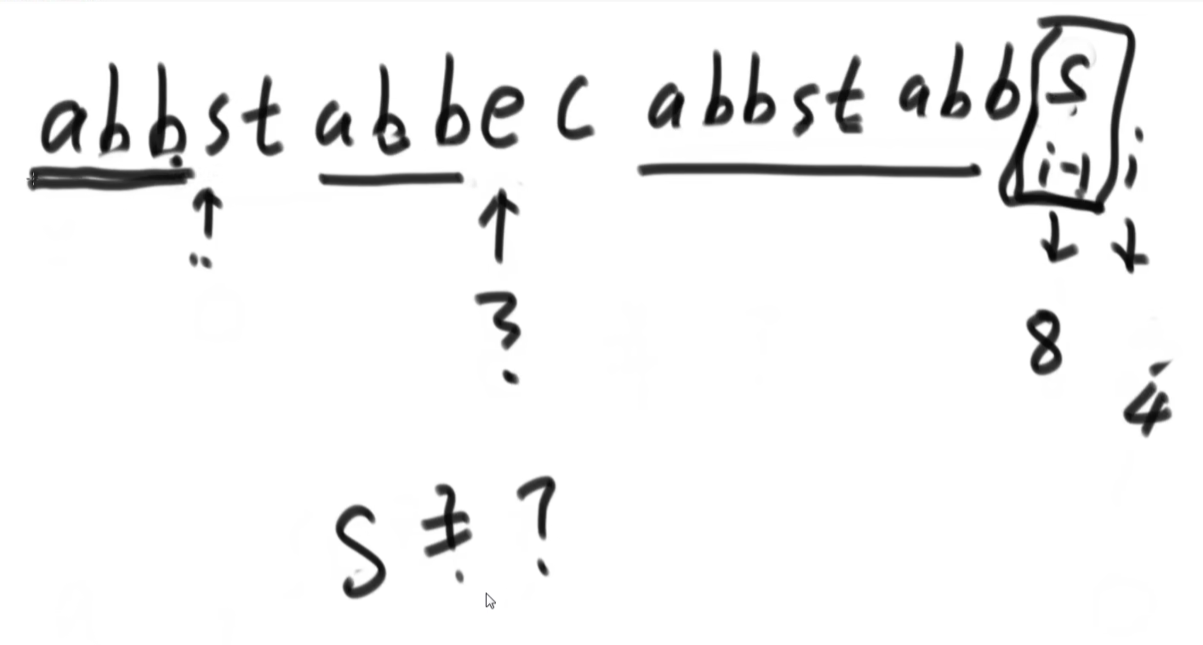 abbst abbec abbst abb s
i-1 i
3
8
4
S ≠ ?